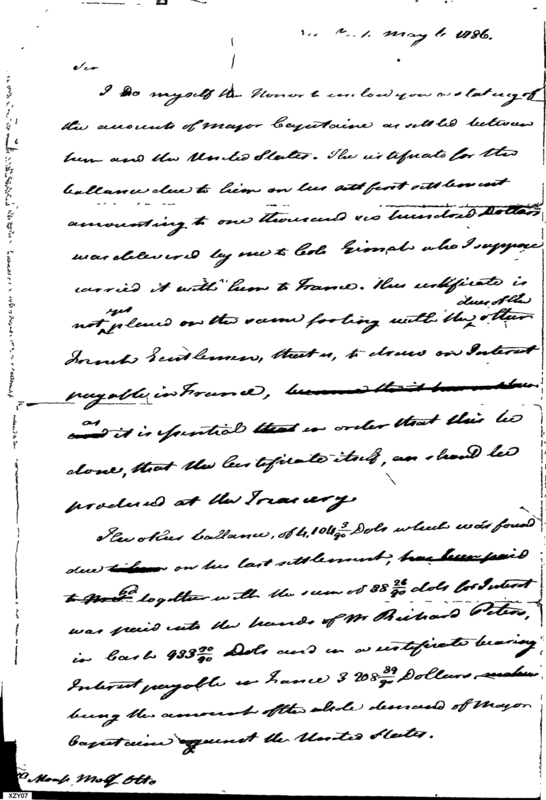 May 4 1786.
Sir
I Do myself the Honor to inclose you a stating of
the accounts of Major Capitaine as settled between
him and the United States. The certificate for the
ballance due to him on his first settlement
amounting to one thousand six hundred Dollars
was delivered by me to Colo Gimat who I suppose
carried it with him to France. This certificate is
yet those of the
not placed on the same footing with the other
French Gentlemen, that is, to draw an Interest
payable in France,
as
it is essential that in order that this be
done, that the Certificate itself, should be
produced at the Treasury
The other ballance, of 4,104 3/90 Dols which was found
due on his last settlement, has been paid
to together with the sum of 38 26/90 dols for Interest
was paid into the hands of Mr Richard Peters,
in Cash 933 30/90 Dols and in a certificate bearing
Interest payable in France 3208 89/90 Dollars
being the amount of the whole demand of Major
Capitaine against the United States.
Monsr. Otto
XZY07